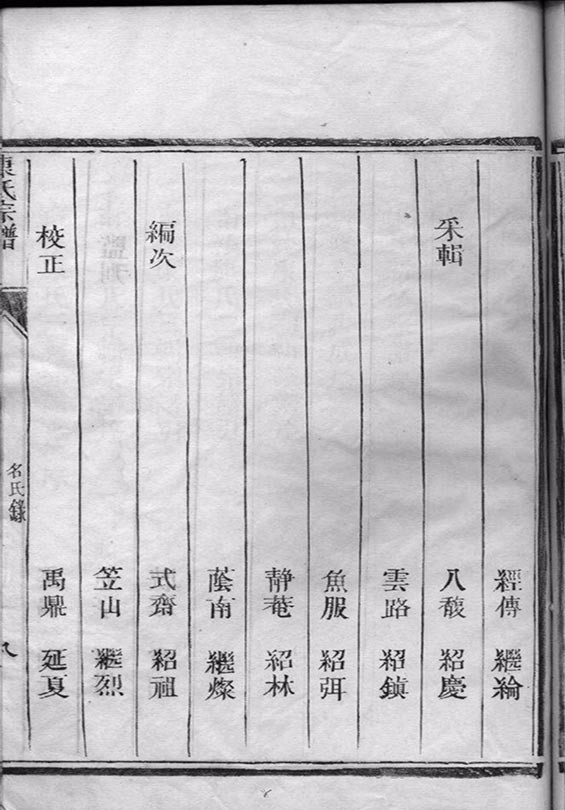 經傳 繼綸
采輯 八馥 紹慶
雲路 紹鎮
魚服 紹弭
静菴 紹林
蔭南 繼燦
編次 式齋 紹祖
笠山 繼烈
校正 禹鼎 延夏
陳氏宗譜 名氏錄 八